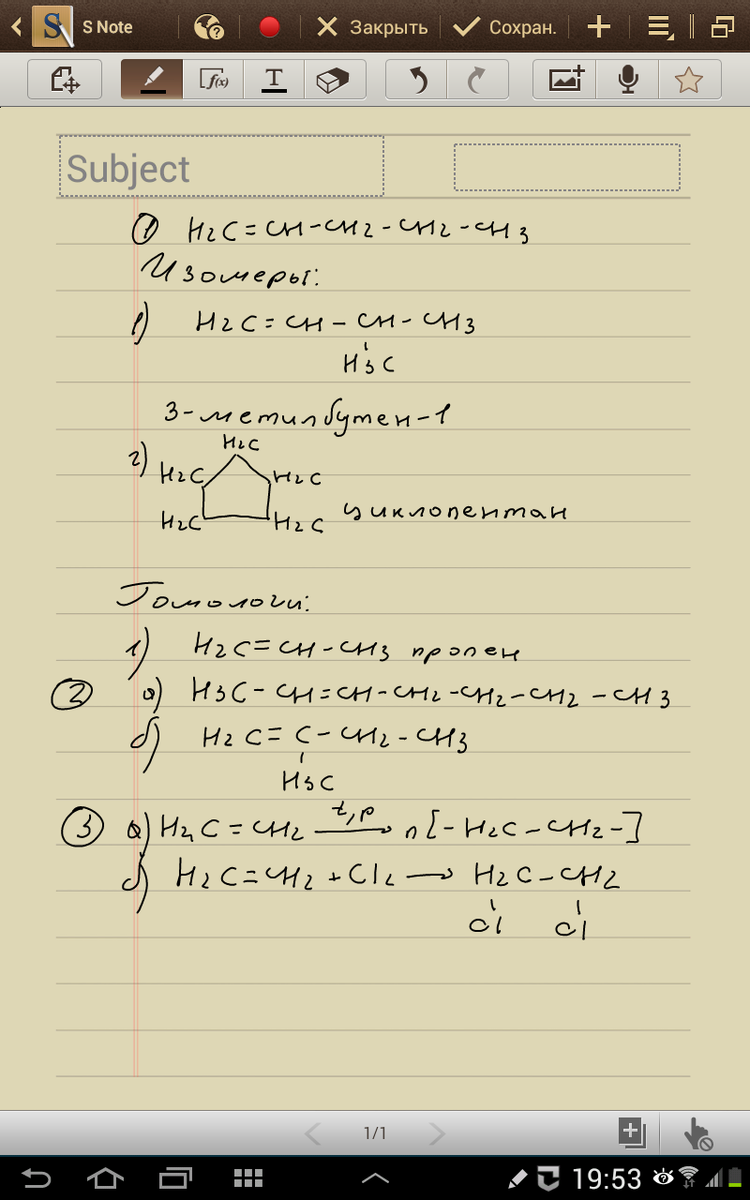 S Note Закрыть Сохран.
f(x) T
Subject
① H2C=CH-CH2-CH2-CH3
Изомеры:
1) H2C=CH-CH-CH3
H3C
3-метилбутен-1
H2C
2) H2C H2C
H2C H2C циклопентан
Гомологи:
1) H2C=CH-CH3 пропен
② а) H3C-CH=CH-CH2-CH2-CH2-CH3
б) H2C=C-CH2-CH3
H3C
t,p
③ а) H2C=CH2 → n[-H2C-CH2-]
б) H2C=CH2+Cl2 → H2C-CH2
Cl Cl
1/1
19:53